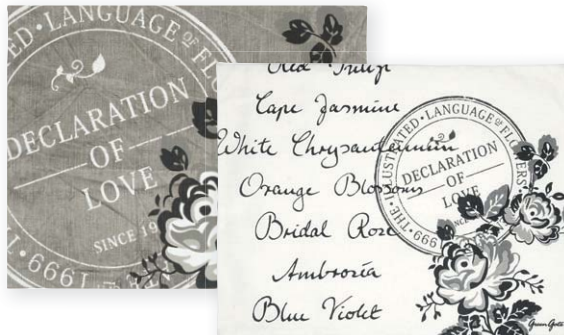 LANGUAGE OF FLO
DECLARATION
OF
LOVE
SINCE 19
1999
Red Tulip
Cape Jasmine
White Chrysanthemum
Orange Blossoms
Bridal Rose
Ambrosia
Blue Violet
THE · ILLUSTRATED · LANGUAGE OF FLOWERS
DECLARATION
OF
LOVE
1999
GreenGate